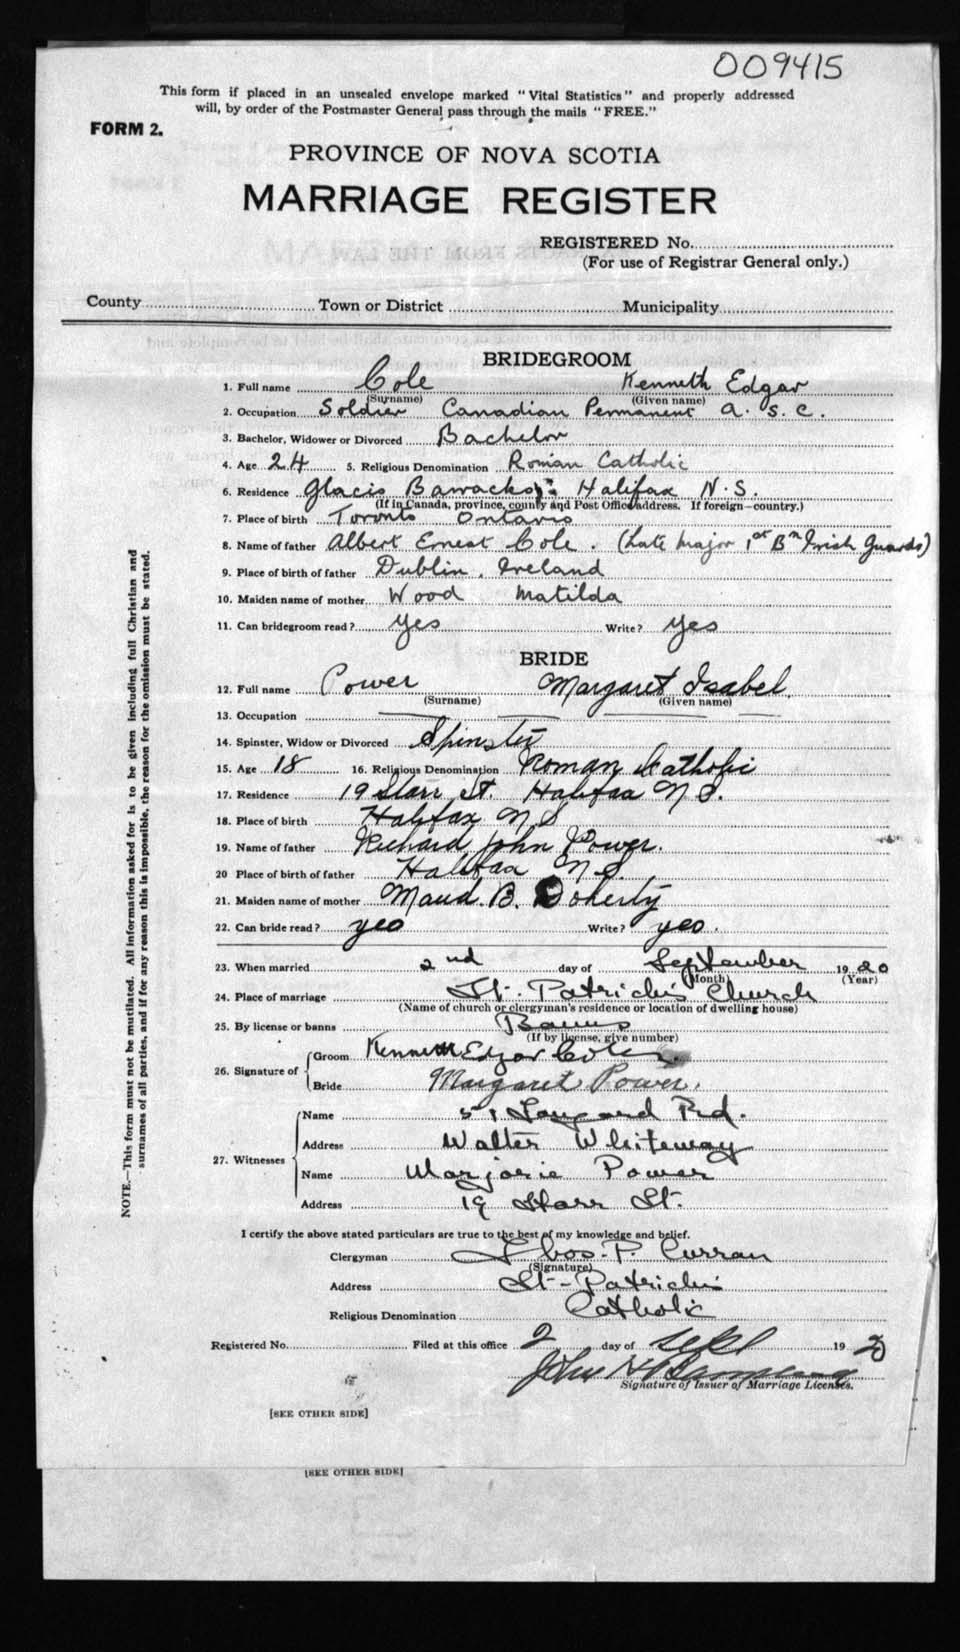 009415
This form if placed in an unsealed envelope marked "Vital Statistics" and properly addressed
will, by order of the Postmaster General pass through the mails "FREE."
FORM 2.
PROVINCE OF NOVA SCOTIA
MARRIAGE REGISTER
REGISTERED No.
(For use of Registrar General only.)
County Town or District Municipality
BRIDEGROOM
1. Full name Cole Kenneth Edgar
(Surname) (Given name)
2. Occupation Soldier Canadian Permanent A. S. C.
3. Bachelor, Widower or Divorced Bachelor
4. Age 24 5. Religious Denomination Roman Catholic
6. Residence Glacis Barracks, Halifax N.S.
(If in Canada, province, county and Post Office address. If foreign—country.)
7. Place of birth Toronto Ontario
8. Name of father Albert Ernest Cole. (Late Major 1st Bn Irish Guards)
9. Place of birth of father Dublin, Ireland
10. Maiden name of mother Wood Matilda
11. Can bridegroom read? Yes Write? Yes
BRIDE
12. Full name Power Margaret Isabel.
(Surname) (Given name)
13. Occupation
14. Spinster, Widow or Divorced Spinster
15. Age 18 16. Religious Denomination Roman Catholic
17. Residence 19 Starr St. Halifax N.S.
18. Place of birth Halifax N S
19. Name of father Richard John Power.
20 Place of birth of father Halifax N.S.
21. Maiden name of mother Maud. B. Doherty
22. Can bride read? yes Write? yes.
23. When married 2nd day of September 1920
(Month) (Year)
24. Place of marriage St. Patrick's Church
(Name of church or clergyman's residence or location of dwelling house)
25. By license or banns Banns
(If by license, give number)
26. Signature of Groom Kenneth Edgar Cole
Bride Margaret Power.
27. Witnesses
Name 51 Rd.
Address Walter Whiteway
Name Marjorie Power
Address 19 Starr St.
I certify the above stated particulars are true to the best of my knowledge and belief.
Clergyman Thos. P. Curran
(Signature)
Address St-Patrick's
Religious Denomination Catholic
Registered No. Filed at this office 2 day of Sept 1920
John H
Signature of Issuer of Marriage Licenses.
[SEE OTHER SIDE]
[SEE OTHER SIDE]
NOTE.—This form must not be mutilated. All information asked for is to be given including full Christian and
surnames of all parties, and if for any reason this is impossible, the reason for the omission must be stated.